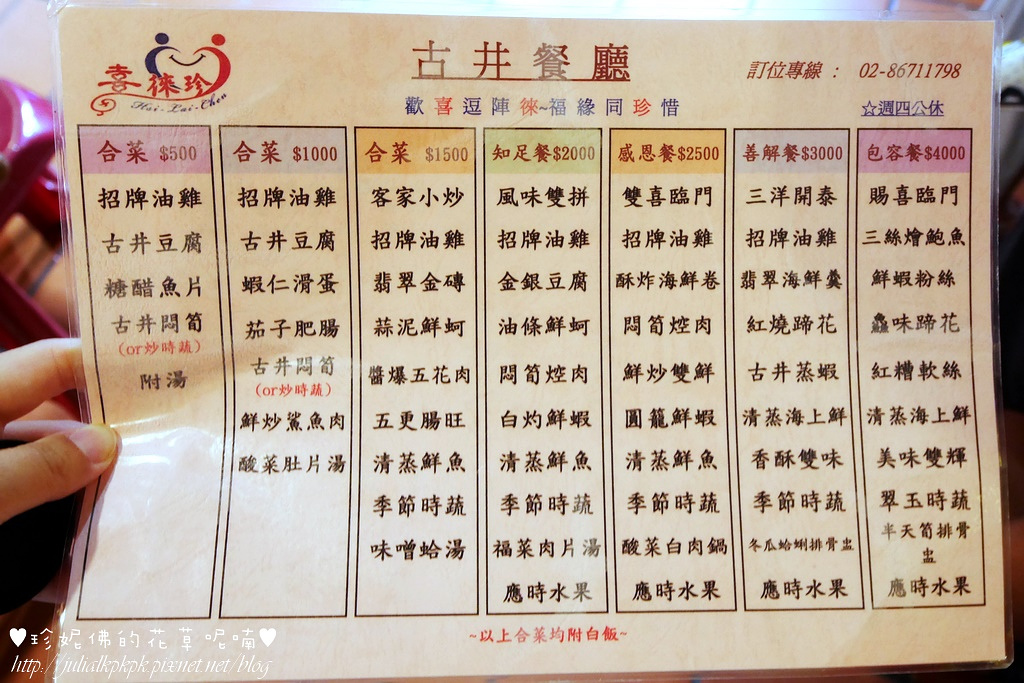 喜徠珍
Hsi-Lai-Chen
古井餐廳
訂位專線： 02-86711798
歡喜逗陣徠~福緣同珍惜
☆週四公休
合菜 $500
招牌油雞
古井豆腐
糖醋魚片
古井悶筍
(or炒時蔬)
附湯
合菜 $1000
招牌油雞
古井豆腐
蝦仁滑蛋
茄子肥腸
古井悶筍
(or炒時蔬)
鮮炒鯊魚肉
酸菜肚片湯
合菜 $1500
客家小炒
招牌油雞
翡翠金磚
蒜泥鮮蚵
醬爆五花肉
五更腸旺
清蒸鮮魚
季節時蔬
味噌蛤湯
知足餐$2000
風味雙拼
招牌油雞
金銀豆腐
油條鮮蚵
悶筍焢肉
白灼鮮蝦
清蒸鮮魚
季節時蔬
福菜肉片湯
應時水果
感恩餐$2500
雙喜臨門
招牌油雞
酥炸海鮮卷
悶筍焢肉
鮮炒雙鮮
圓籠鮮蝦
清蒸鮮魚
季節時蔬
酸菜白肉鍋
應時水果
善解餐$3000
三洋開泰
招牌油雞
翡翠海鮮羹
紅燒蹄花
古井蒸蝦
清蒸海上鮮
香酥雙味
季節時蔬
冬瓜蛤蜊排骨盅
應時水果
包容餐$4000
賜喜臨門
三絲燴鮑魚
鮮蝦粉絲
鱻味蹄花
紅糟軟絲
清蒸海上鮮
美味雙輝
翠玉時蔬
半天筍排骨
盅
應時水果
~以上合菜均附白飯~
♥珍妮佛的花草呢喃♥
http://julialkpkpk.pixnet.net/blog